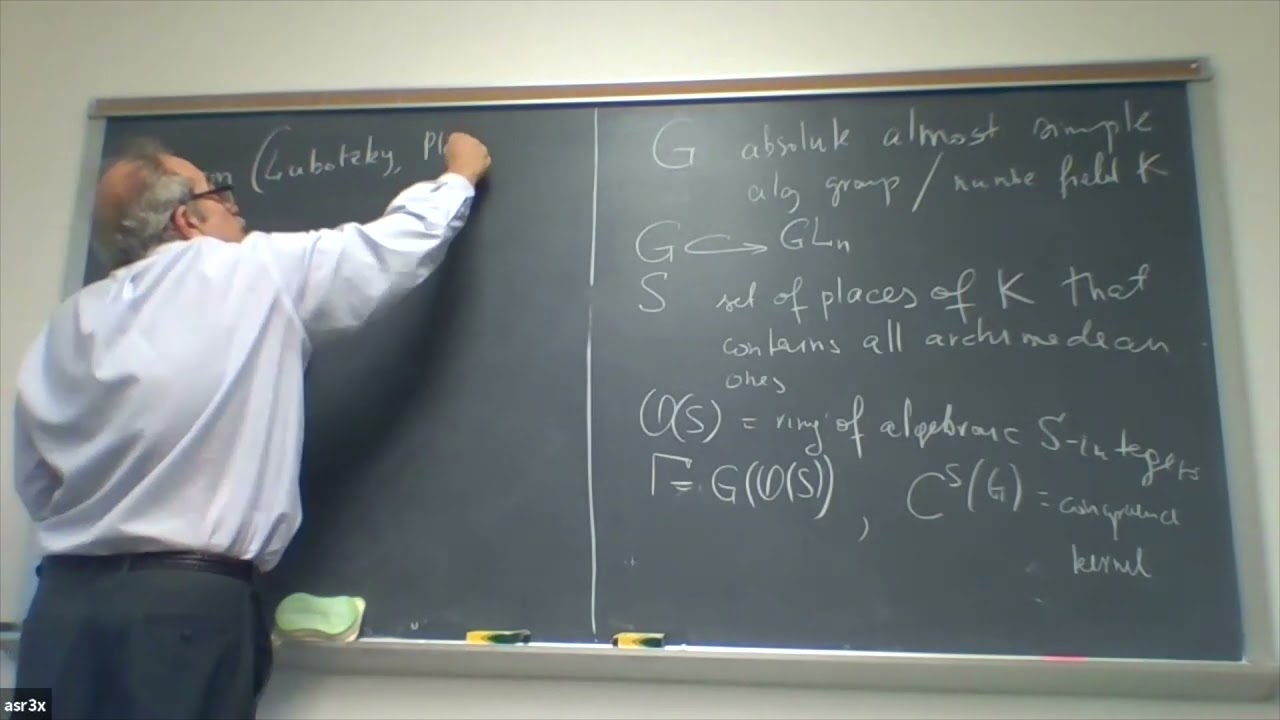 (Lubotzky, Pl
G absolute almost simple
alg group / numbe field K
G ↪ GLₙ
S set of places of K that
contains all archimedean
ones
O(S) = ring of algebraic S-integers
Γ = G(O(S)), Cˢ(G) = congruence
kernel
asr3x